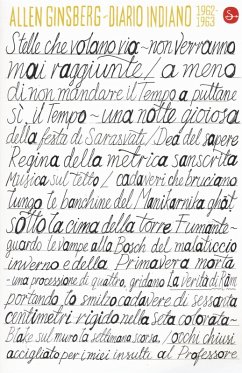 ALLEN GINSBERG - DIARIO INDIANO 1962-1963
Stelle che volano via - non verranno
mai raggiunte / a meno
di non mandare il Tempo a puttane
sì, il Tempo - una notte gioiosa
della festa di Sarasvati / Dea del sapere
Regina della metrica sanscrita
Musica sul tetto / cadaveri che bruciano
lungo le banchine del Manikarnika ghat
sotto la cima della torre Fumante -
guardo le vampe alla Bosch del malaticcio
inverno e della Primavera morta -
una processione di quattro, gridano La verità di Ram
portando lo smilzo cadavere di sessanta
centimetri rigido nella seta colorata -
Blake sul muro la settimana scorsa / occhi chiusi
accigliato per i miei insulti al Professore